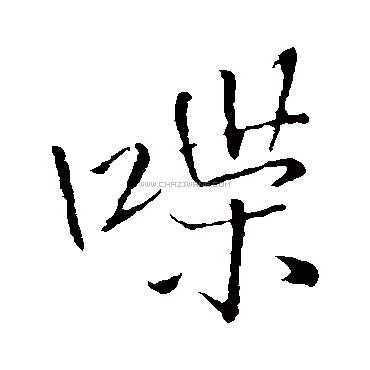 喋
WWW.CHAZIWANG.COM